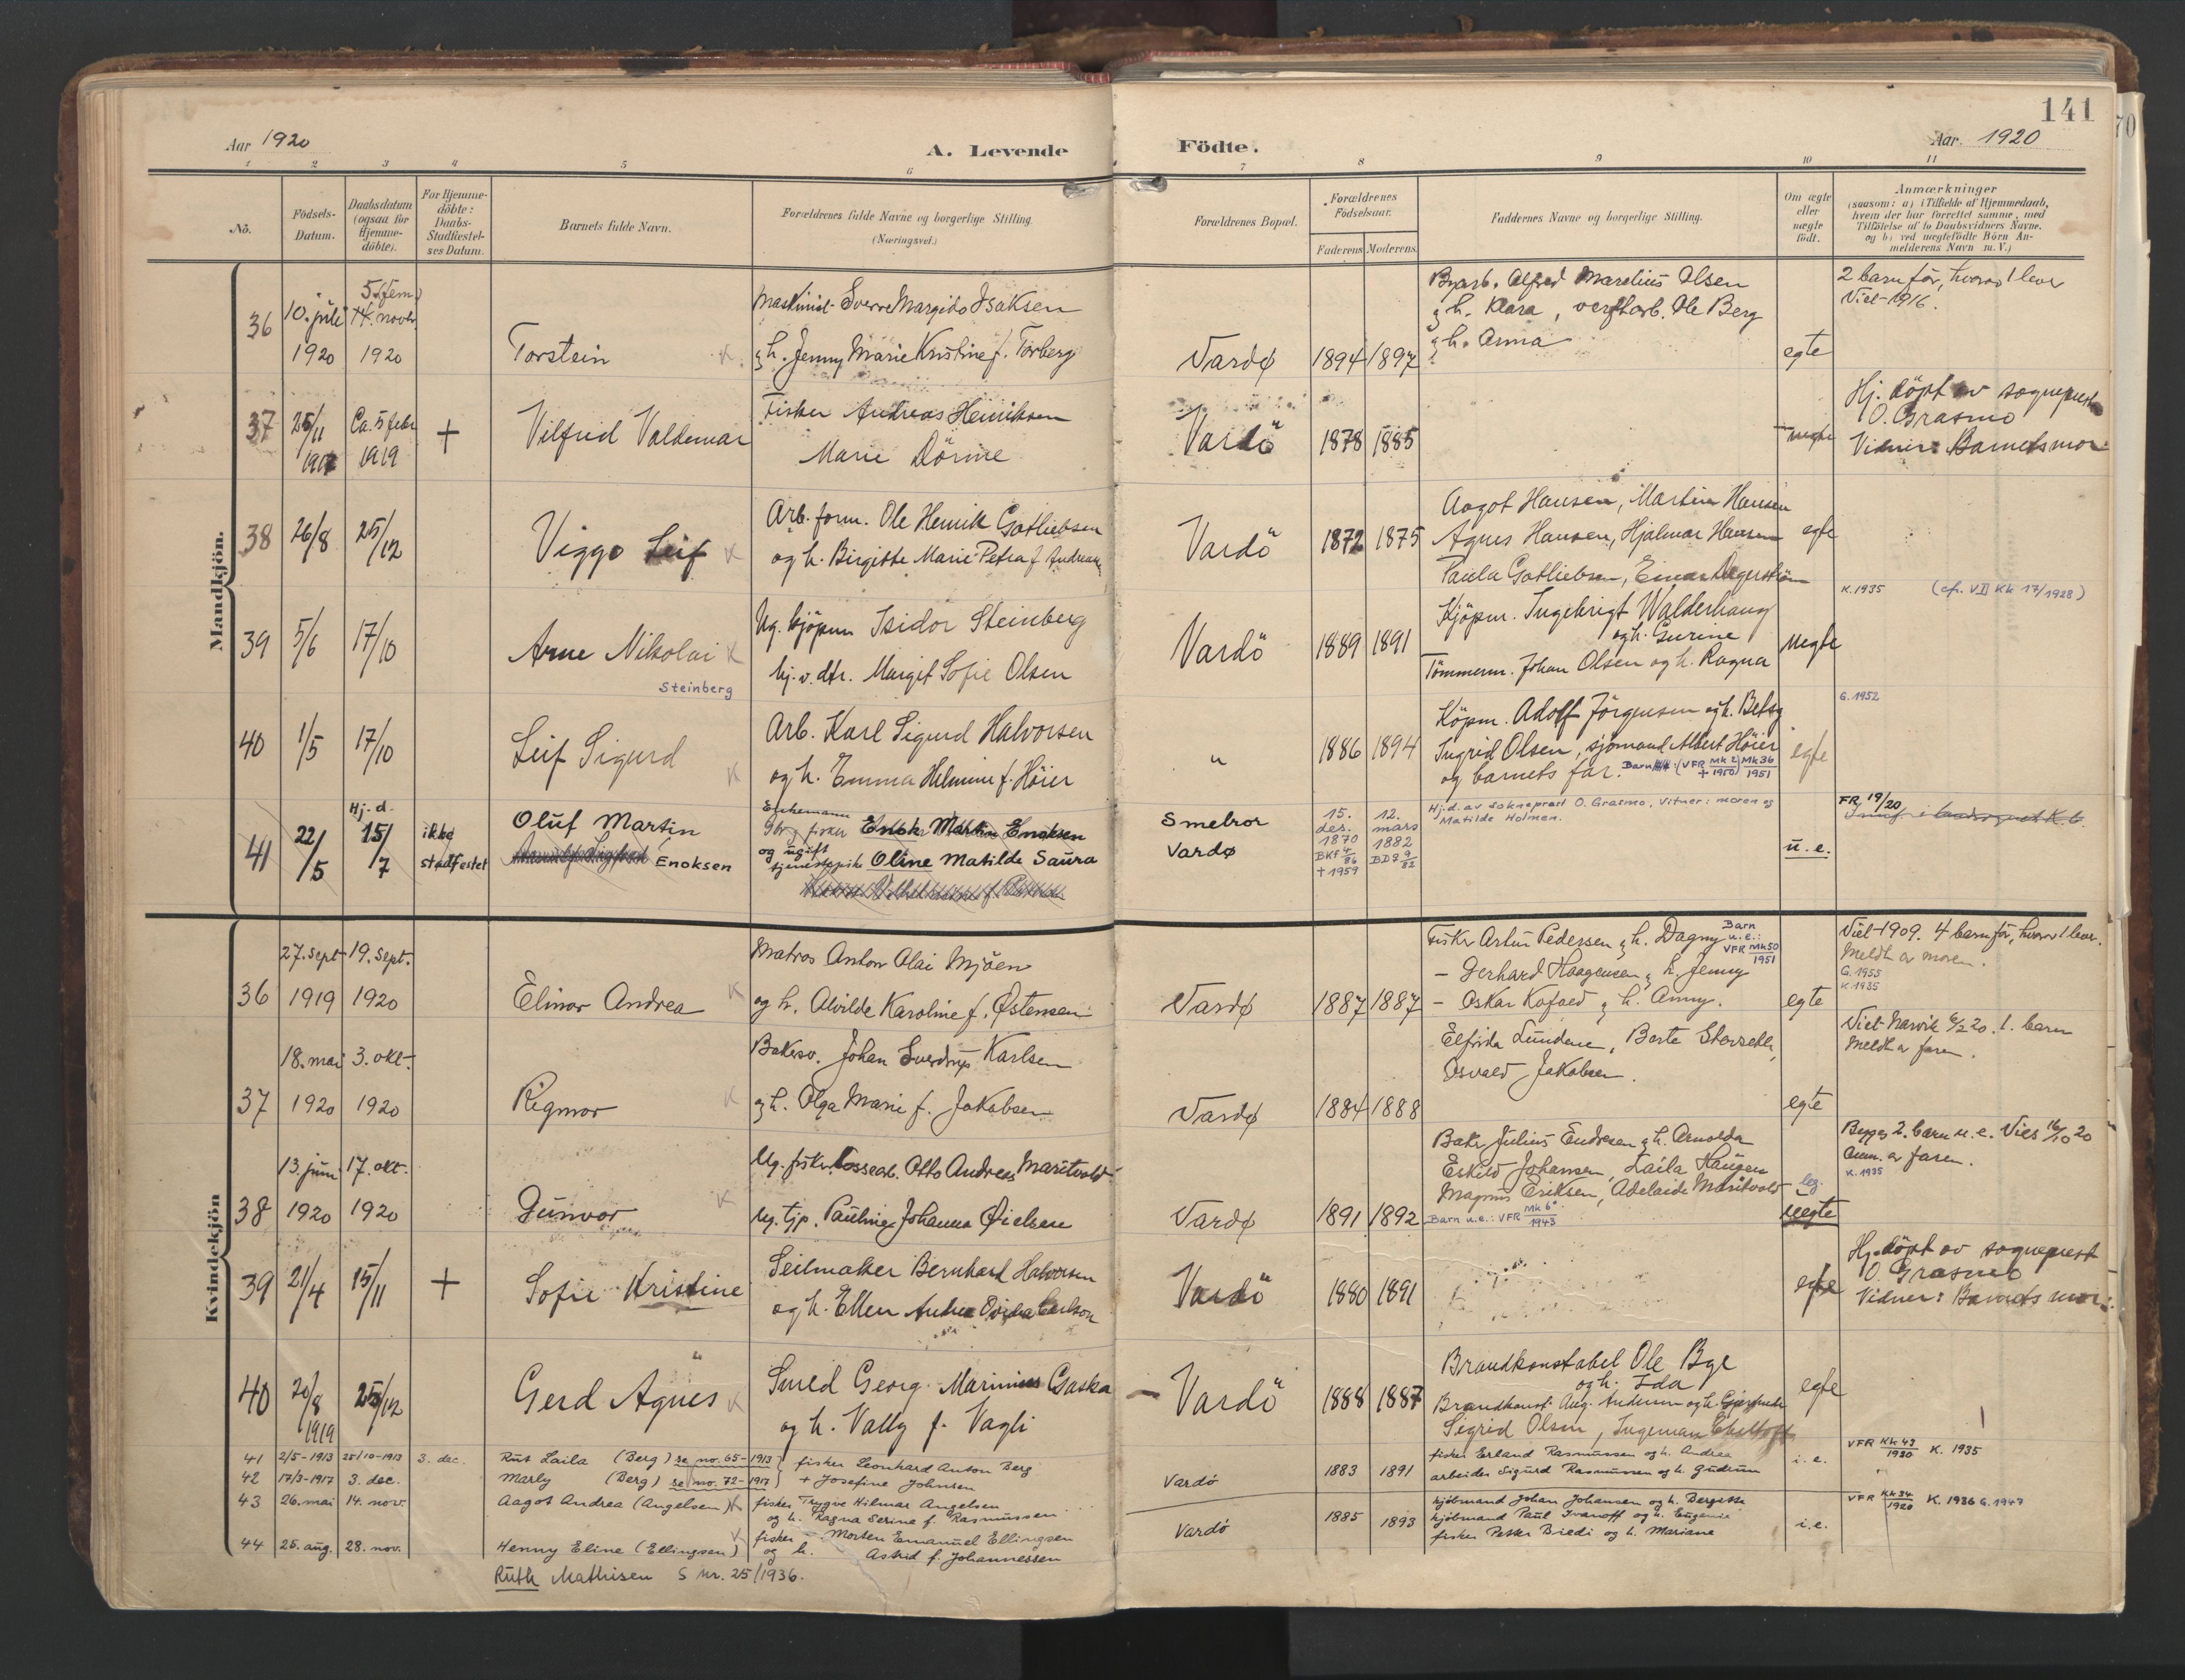 141
70
Aar 1920
A. Levende
Födte.
Aar. 1920
1 2 3 4 5 6 7 8 9 10 11
No.
Födsels-Datum.
Daabsdatum (ogsaa for Hjemme-döbte).
For Hjemme-döbte: Daabs-Stadfæstel-ses Datum.
Barnets fulde Navn.
Forældrenes fulde Navne og borgerlige Stilling. (Næringsvei.)
Forældrenes Bopæl.
Forældrenes Födselsaar.
Faderens Moderens
Faddernes Navne og borgerlige Stilling.
Om ægte eller uægte født.
Anmærkninger
(saasom: a) i Tilfælde af Hjemmedaab, hvem der har forrettet samme, med Tilföielse af to Daabsvidners Navne, og b) ved uægtefödte Börn An-melderens Navn m. V.)
Mandkjön.
36 10. juli 1920 5. (fem) novbr. 1920
Torstein K
Maskinist Sverre Margido Isaksen
og h. Jenny Marie Kristine f. Torberg
Vardø 1894 1897
Byarb. Alfred Marelius Olsen
og h. Klara, verftarb. Ole Berg
og h. Anna
egte
2 barn før, hvorav 1 lever
Viet 1916.
37 25/11 Ca. 5 febr 1919 +
Vilfrid Valdemar
Fisker Andreas Henriksen
Marie Dörine
Vardö 1878 1885
uegte
Hj. döpt av sogneprest
O. Grasmo
Vidner: Barnets mor.
38 26/8 25/12
Viggo Leif K
Arb. form. Ole Henrik Gotliebsen
og h. Birgitte Marie Petra f. Andreasen
Vardö 1872 1875
Aagot Hansen, Martin Hansen
Agnes Hansen, Hjalmar Hansen
Paula Gotliebsen, Einar Degerström
egte
K. 1935 (cfr. VII Kk 17/1928)
39 5/6 17/10
Arne Nikolai K
Steinberg
Ug. kjöpm Isidor Steinberg
hj. v. dtr. Margit Sofie Olsen
Vardö 1889 1891
Kjöpm. Ingebrigt Walderhaug
og h. Gurine
Tömmerm. Johan Olsen og h. Ragna
uegte
G. 1952
40 1/5 17/10
Leif Sigurd K
Arb. Karl Sigurd Halvorsen
og h. Emma Helmine f. Höier
" 1886 1894
Köpm. Adolf Jörgensen og h. Betsy
Ingrid Olsen, sjömand Albert Höier
og barnets far. Barn: (VFR Mk 2/1950) Mk 36/1951
egte
41 22/5 Hj. d. 15/7 ikke stadfestet
Oluf Martin
Enoksen
Enkemann
fisker Enok Martin Enoksen
og ugift
tjenestepike Oline Matilde Saura
Smelror
Vardø
15. des. 1870 BKf 4/86 + 1959
12. mars 1882 BDG 9/82
Hj. d. av sokneprest O. Grasmo, Vitner: moren og
Matilde Holmen.
u. e.
FR 19/20
Kvindekjön
36 27. sept 1919 19. sept. 1920
Elinor Andrea K
Matros Anton Olai Mjöen
og h. Alvilde Karoline f. Østensen
Vardø 1887 1887
Fisker Artur Pedersen og h. Dagny
Barn u.e.: VFR Mk 50/1951
– Gerhard Haagensen og h. Jenny
– Oskar Kofoed og h. Anny.
egte
Viet 1909. 4 barn før, hvorav 1 lever.
Meldt av moren.
G. 1955
K. 1935
37 18. mai 1920 3. okt. 1920
Rigmor K
Bakersv. Johan Sverdrup Karlsen
og h. Olga Marie f. Jakobsen
Vardø 1884 1888
Elfrida Lundene, Berte
Osvald Jakobsen.
egte
Viet Narvik 6/2 20. 1. barn
Meldt av faren.
38 13. juni 1920 17. okt. 1920
Gunvor K
Ug. fisker, lossearb. Otto Andreas Maritvold
Ug. tjp. Pauline Johanna Øielsen
Vardø 1891 1892
Baker Julius Endresen og h. Arnolda
Eskild Johansen, Laila Haugen
Magnus Eriksen, Adelaide Maritvold
Barn u.e.: VFR Mk 6/1943
leg.
uegte
Begges 2. barn u. e. Vies 16/10 20
Anm. av faren.
K. 1935
39 21/4 15/11 +
Sofie Kristine
Seilmaker Bernhard Halvorsen
og h. Ellen Andrea Ovidia Carlson
Vardö 1880 1891
egte
Hj. döpt av sogneprest
O. Grasmo
Vidner: Barnets mor.
40 20/8 1919 25/12
Gerd Agnes K
Smed Georg Marinius Gaska
og h. Vally f. Vagli
Vardö 1888 1887
Brandkonstabel Ole Bye
og h. Ida
Brandkonst. Aug. Andersen og h.
Sigrid Olsen, Ingeman
egte
41 2/5-1913 25/10-1913 3. dec.
Rut Laila (Berg) se no. 65-1913
42 17/3-1917 3. dec.
Marly (Berg) se no. 72-1917
fisker Leonhard Anton Berg
+ Josefine Johnsen
Vardö
43 26. mai 14. nov.
Aagot Andrea (Angelsen) K
fisker Trygve Hilmar Angelsen
og h. Ragna Serine f. Rasmussen
1883 1891
fisker Erland Rasmussen og h. Andrea
arbeider Sigurd Rasmussen og h. Gudrun
i. e.
VFR Kk 43/1920 K. 1935
44 25. aug. 28. nov.
Henny Eline (Ellingsen) K
fisker Morten Emanuel Ellingsen
og h. Astrid f. Johannessen
Vardö 1885 1893
kjöbmand Johan Johansen og h. Bergitte
kjöbmand Paul Ivanoff og h. Eugenie
fisker Petter Biedi og h. Mariane
i. e.
VFR Kk 34/1920 K. 1936 G. 1947
Ruth Mathisen S nr. 25/1936.